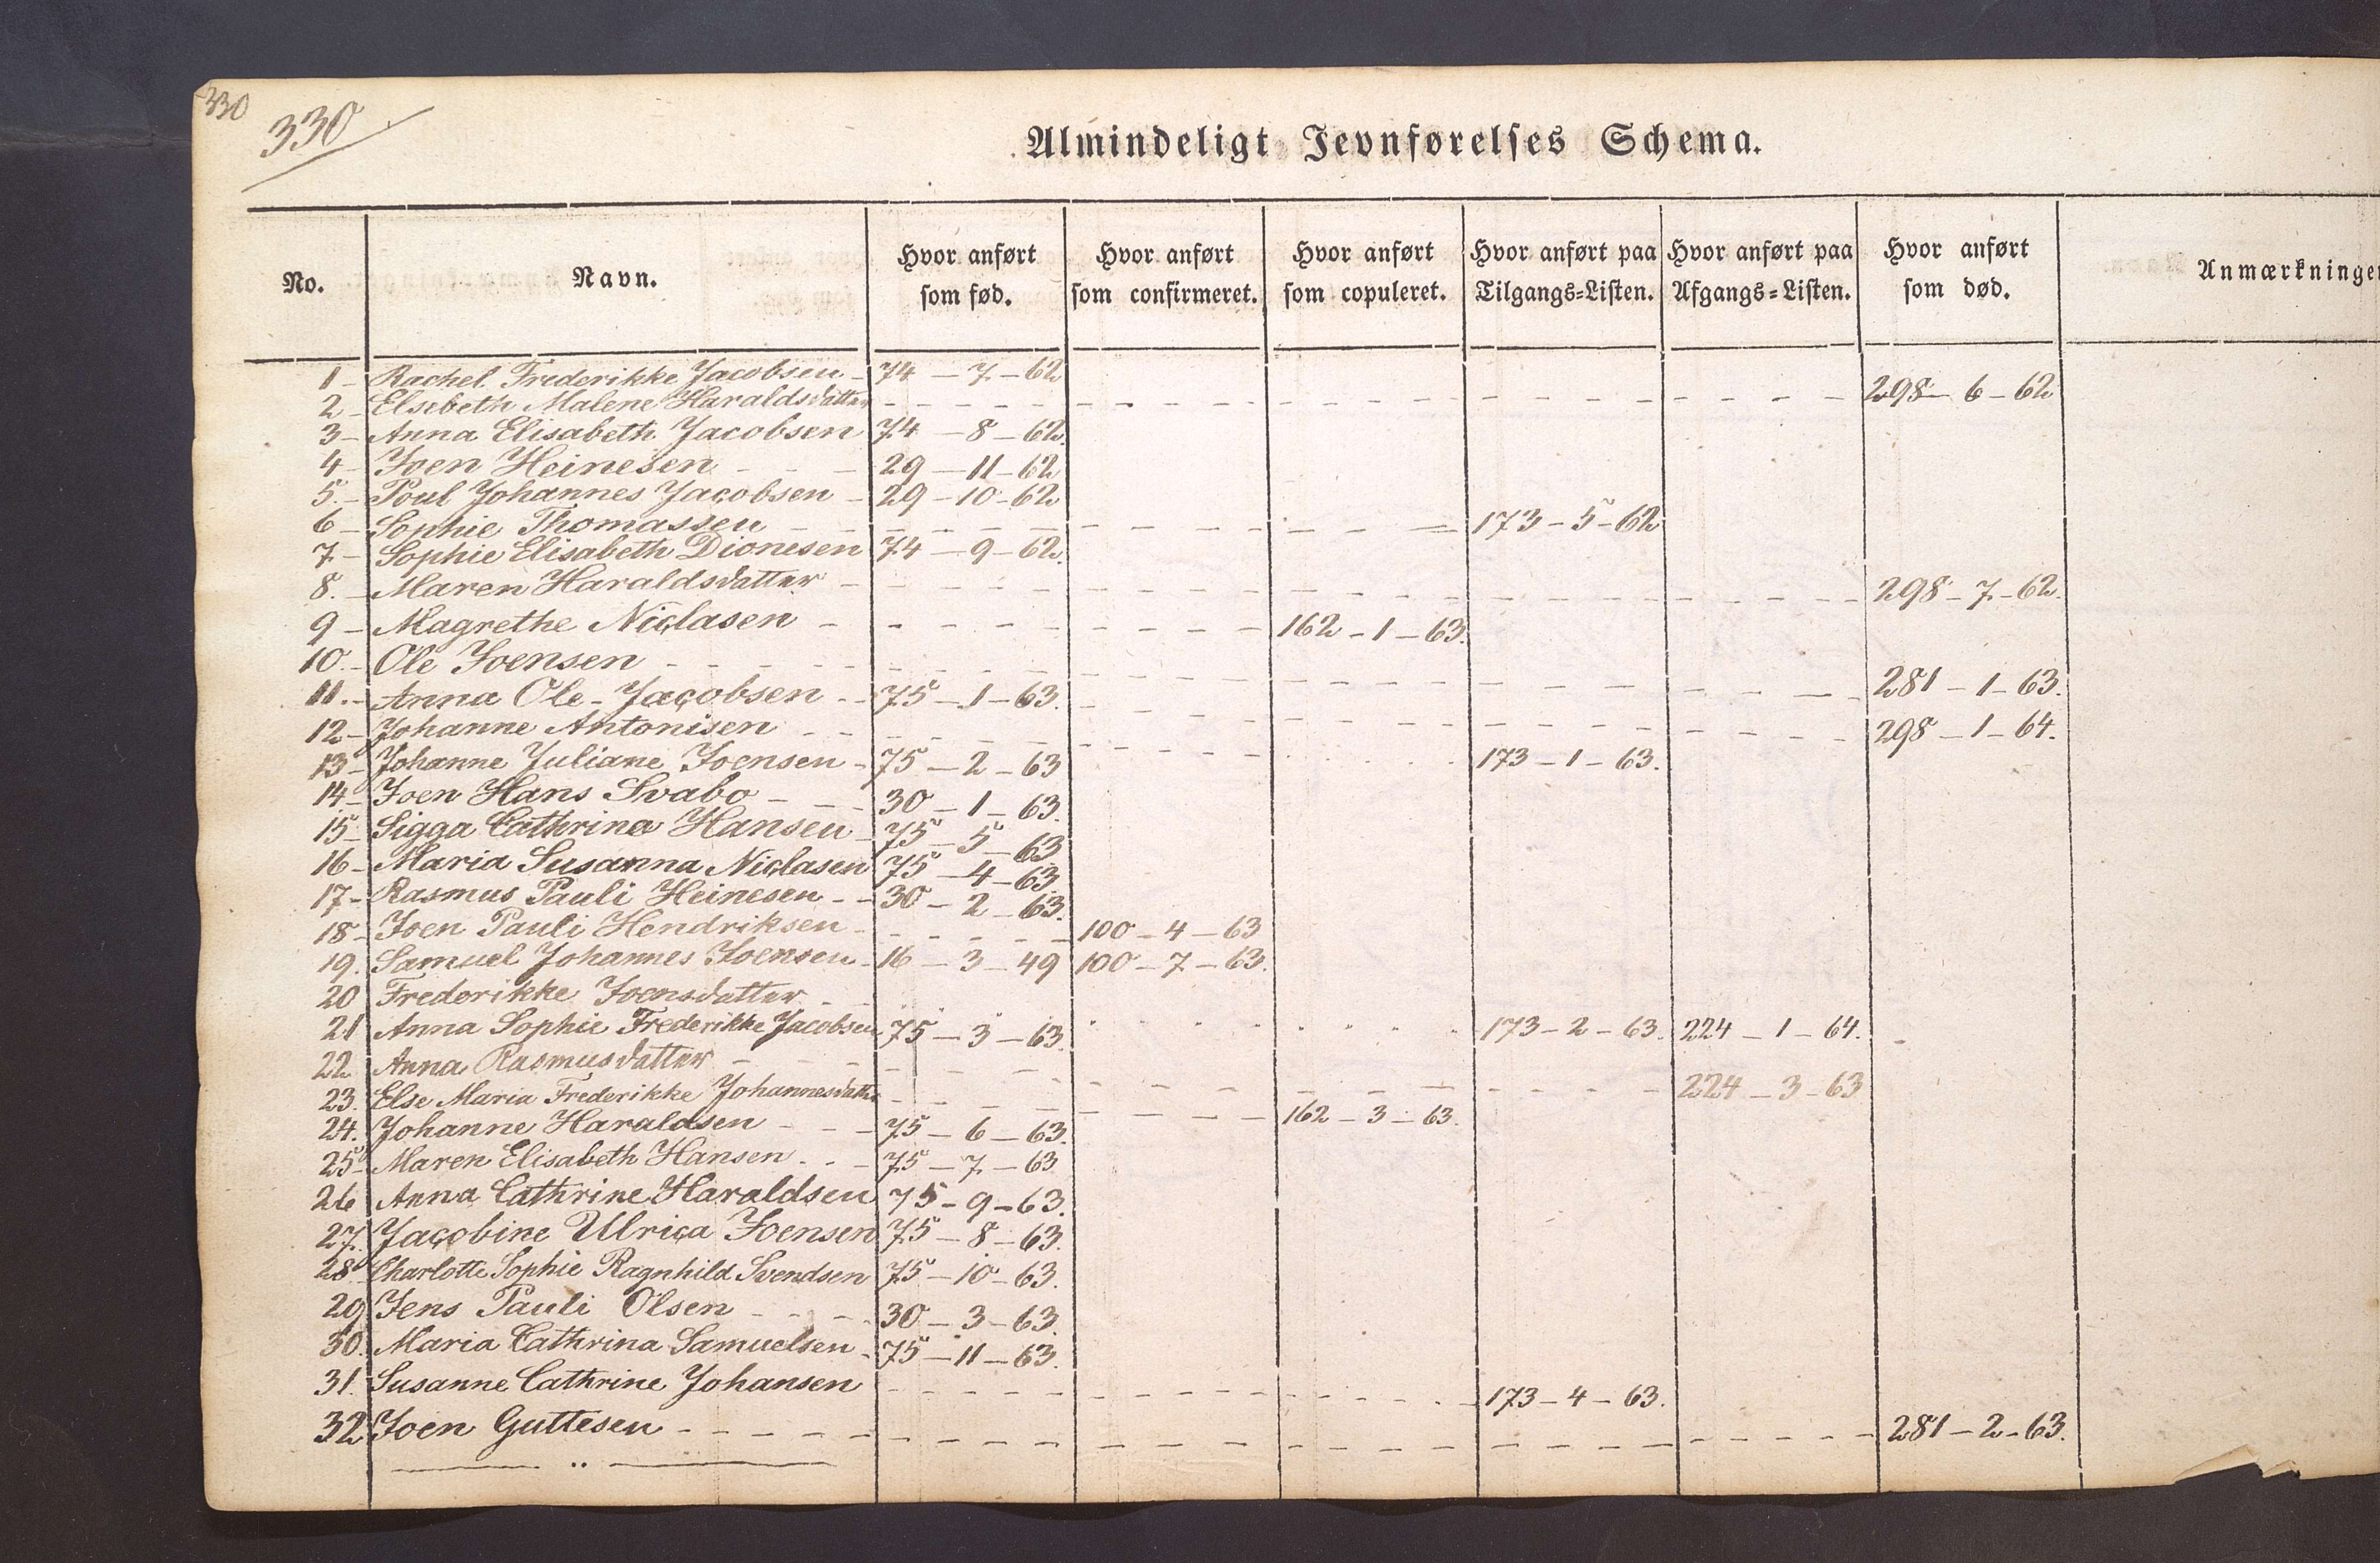 330
330
Almindeligt Jevnførelses Schema.
No. Navn. Hvor anført som fød. Hvor anført som confirmeret. Hvor anført som copuleret. Hvor anført paa Tilgangs=Listen. Hvor anført paa Afgangs=Listen. Hvor anført som død. Anmærkninger
1 - Rachel Frederikke Jacobsen - 74 - 7 - 62
2 - Elsebeth Malene Haraldsdatter - - - 298 - 6 - 62
3 - Anna Elisabeth Jacobsen 74 - 8 - 62.
4 - Joen Heinesen - - - 29 - 11 - 62
5. - Poul Johannes Jacobsen - 29 - 10 - 62
6 - Sophie Thomassen - - - 173 - 5 - 62
7 - Sophie Elisabeth Dionesen 74 - 9 - 62.
8. - Maren Haraldsdatter - - - 298 - 7 - 62.
9 - Magrethe Niclasen - - - 162 - 1 - 63.
10. - Ole Joensen - - - 281 - 1 - 63.
11. - Anna Ole - Jacobsen - - 75 - 1 - 63.
12 - Johanne Antonisen - - - 298 - 1 - 64.
13 - Johanne Juliane Joensen - 75 - 2 - 63 173 - 1 - 63.
14 - Joen Hans Svabo - - - 30 - 1 - 63.
15 - Sigga Cathrina Hansen 75 - 5 - 63
16 - Maria Susanna Niclasen 75 - 4 - 63.
17 - Rasmus Pauli Heinesen - - 30 - 2 - 63.
18 - Joen Pauli Hendriksen - - - 100 - 4 - 63
19. Samuel Johannes Joensen - 16 - 3 - 49 100 - 7 - 63.
20 Frederikke Joensdatter - - - 173 - 2 - 63. 224 - 1 - 64.
21 Anna Sophie Frederikke Jacobsen 75 - 3 - 63.
22. Anna Rasmusdatter - - - 224 - 3 - 63
23. Else Maria Frederikke Johannesdatter - - - 162 - 3 - 63.
24. Johanne Haraldsen - - - 75 - 6 - 63.
25 - Maren Elisabeth Hansen - - - 75 - 7 - 63
26 Anna Cathrine Haraldsen 75 - 9 - 63.
27. Jacobine Ulrica Joensen 75 - 8 - 63.
28 Charlotte Sophie Ragnhild Svendsen 75 - 10 - 63.
29 Jens Pauli Olsen - - - 30 - 3 - 63.
30. Maria Cathrina Samuelsen - 75 - 11 - 63.
31. Susanne Cathrine Johansen - - - 173 - 4 - 63.
32 Joen Guttesen - - - 281 - 2 - 63.